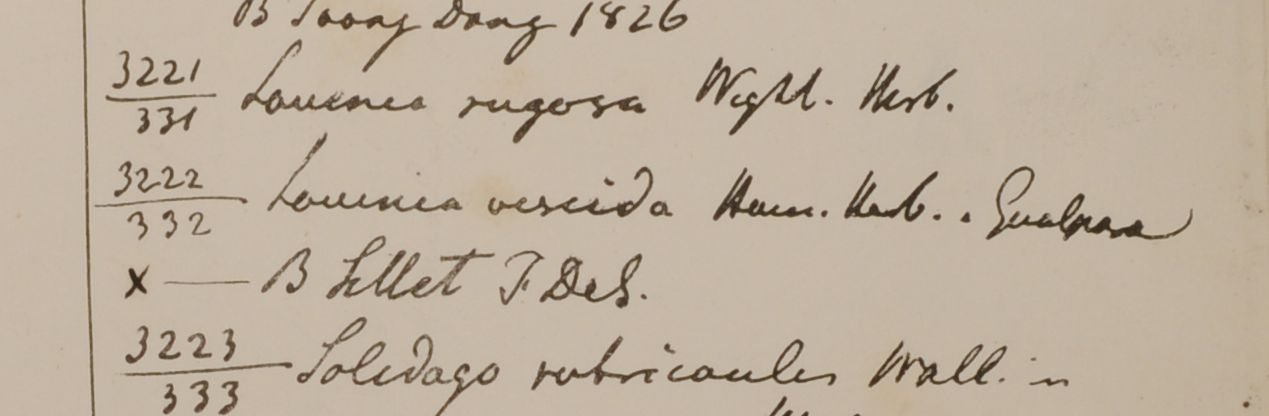 B Toong Dong 1826
3221
331 Lavenia rugosa Wight. Herb.
3222
332 Lavenia viscida Ham. Herb. Gualpara
x — B Sillet F. DeS.
3223
333 Solidago rubricaulis Wall. in